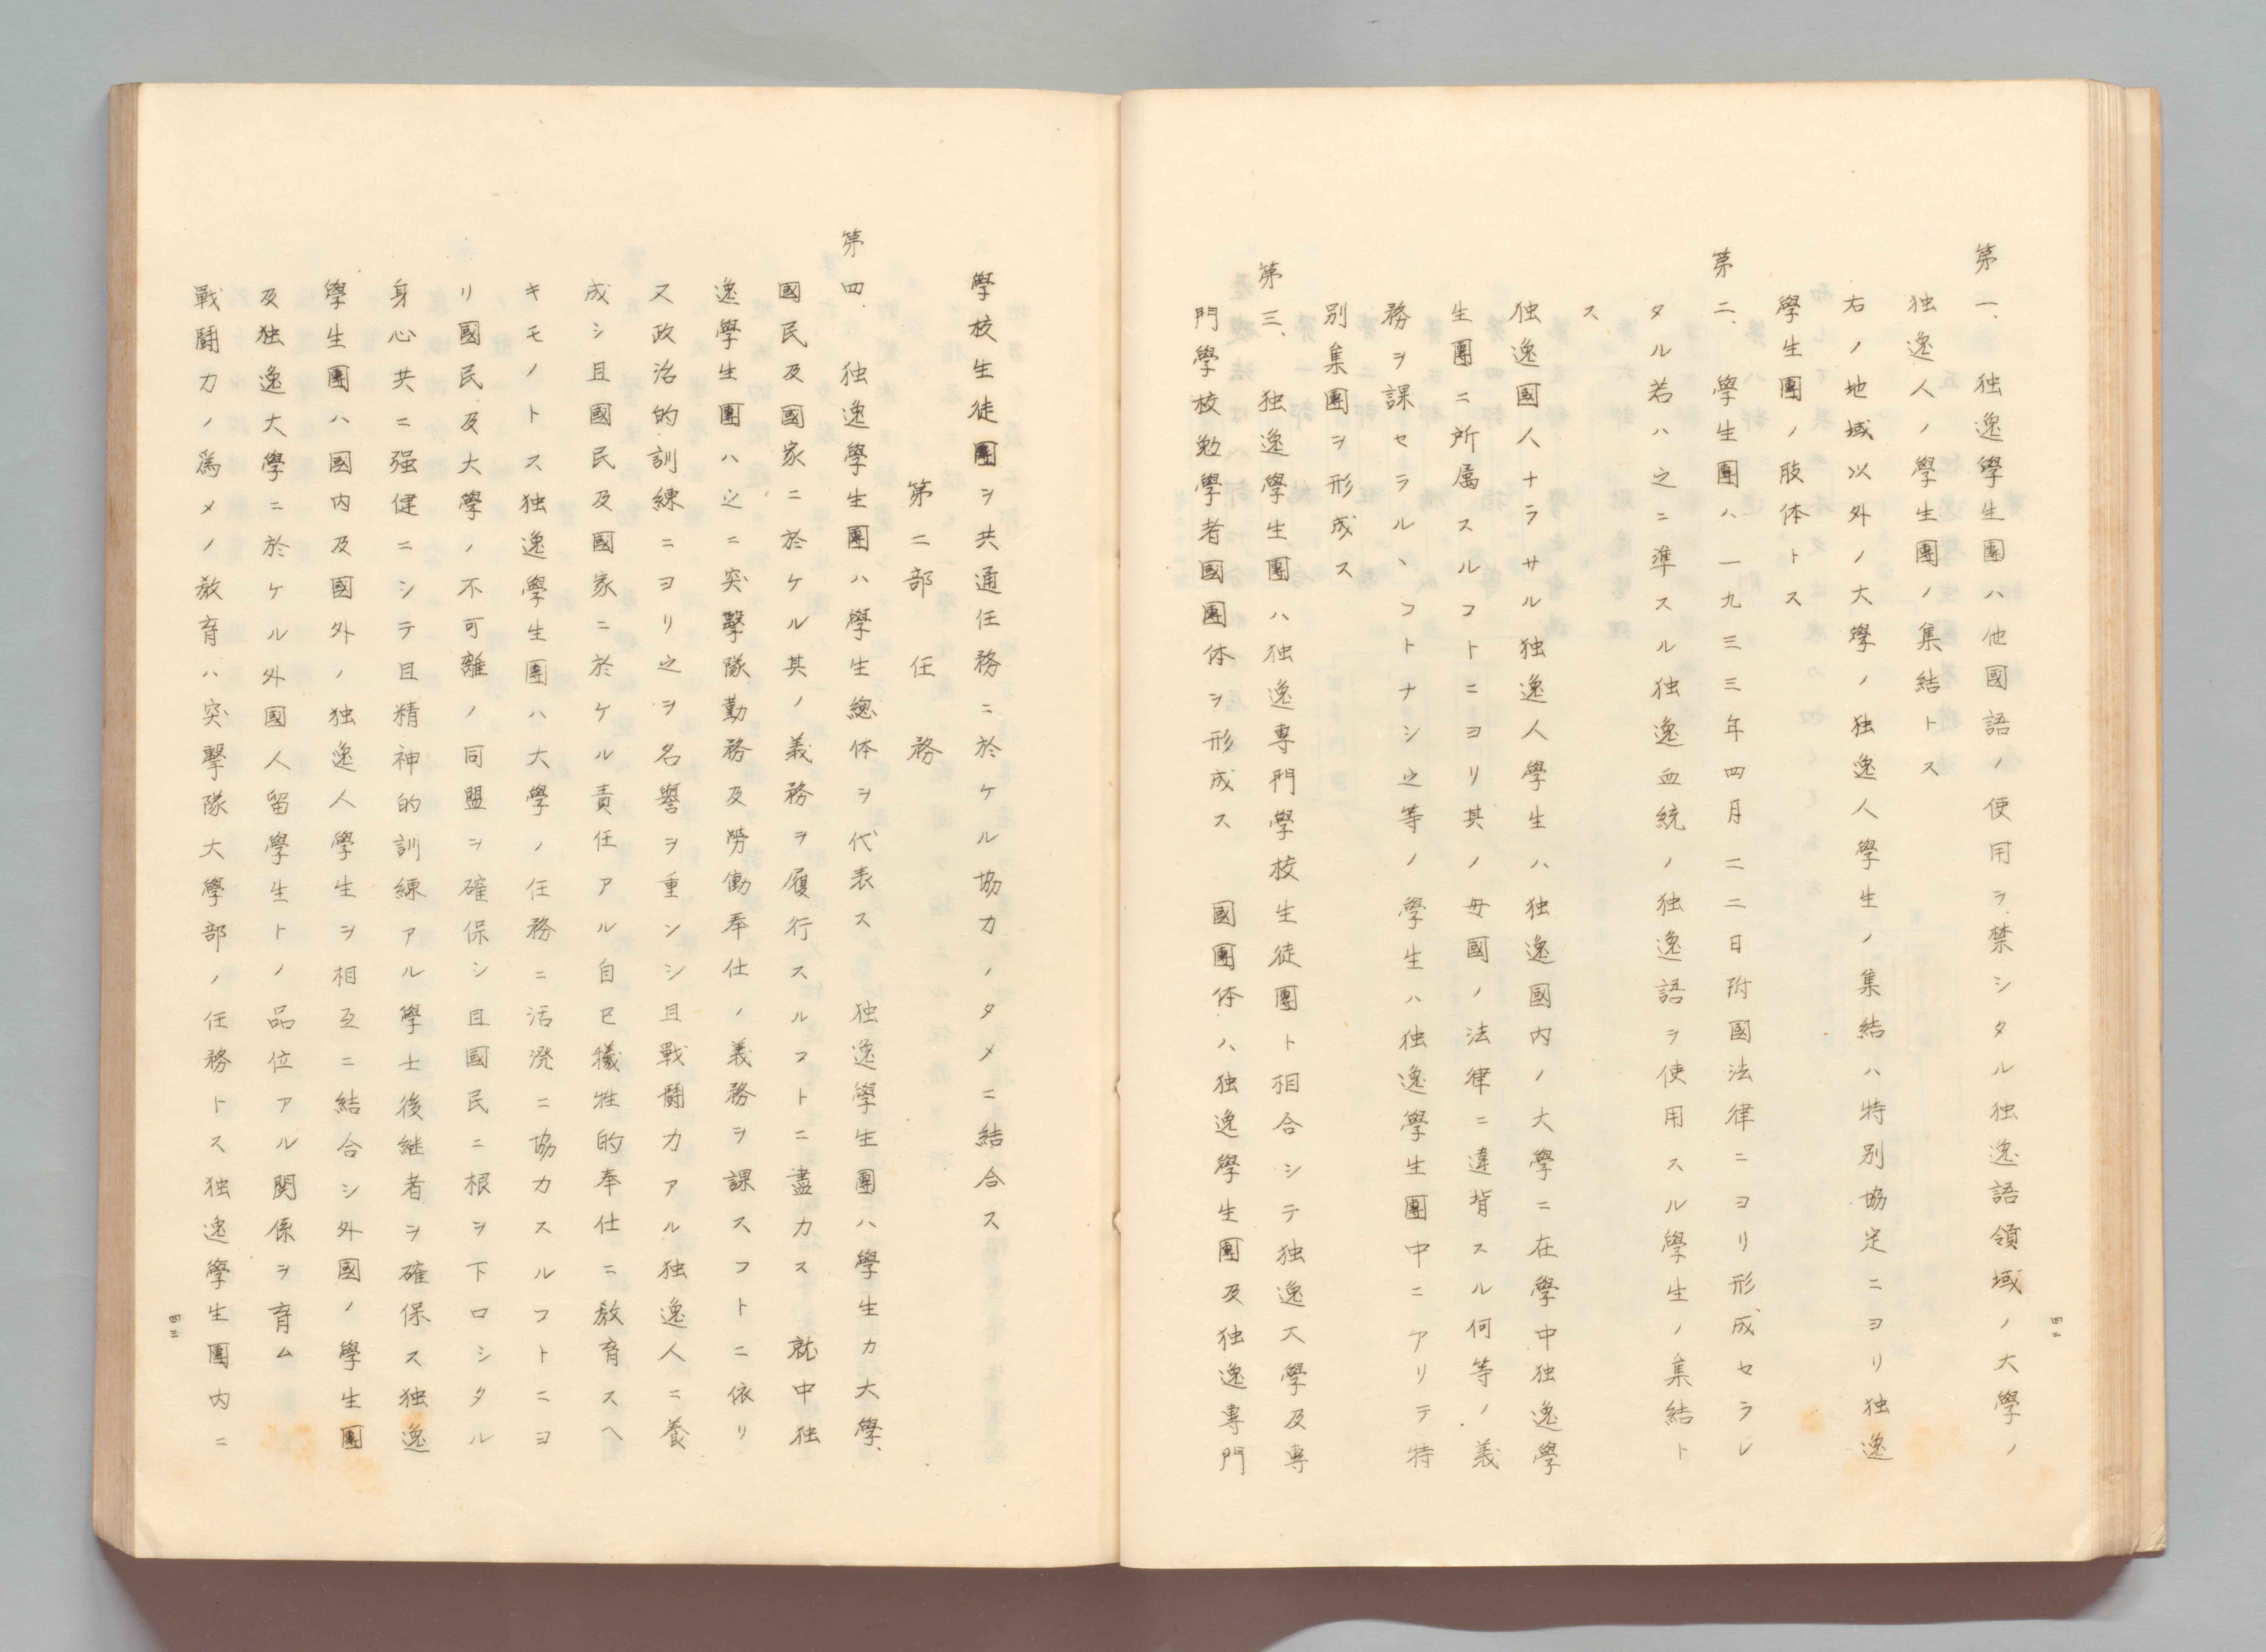 第一、独逸學生團ハ他國語ノ使用ヲ禁シタル独逸語領域ノ大學ノ
独逸人ノ學生團ノ集結トス
右ノ地域以外ノ大學ノ独逸人學生ノ集結ハ特別協定ニヨリ独逸
學生團ノ肢体トス
第二、學生團ハ一九三三年四月二二日附國法律ニヨリ形成セラレ
タル若ハ之ニ準スル独逸血統ノ独逸語ヲ使用スル學生ノ集結ト
ス
独逸國人ナラサル独逸人學生ハ独逸國内ノ大學ニ在學中独逸學
生團ニ所属スルコトニヨリ其ノ母國ノ法律ニ違背スル何等ノ義
務ヲ課セラルヽコトナシ之等ノ學生ハ独逸學生團中ニアリテ特
別集團ヲ形成ス
第三、独逸學生團ハ独逸専門學校生徒團ト相合シテ独逸大學及専
門學校勉學者國團体ヲ形成ス 國團体ハ独逸學生團及独逸専門
學校生徒團ヲ共通任務ニ於ケル協力ノタメニ結合ス
第二部 任務
第四、独逸學生團ハ學生總体ヲ代表ス 独逸學生團ハ學生カ大學、
國民及國家ニ於ケル其ノ義務ヲ履行スルコトニ盡力ス 就中独
逸學生團ハ之ニ突擊隊勤務及勞働奉仕ノ義務ヲ課スコトニ依リ
又政治的訓練ニヨリ之ヲ名譽ヲ重ンシ且戰鬪力アル独逸人ニ養
成シ且國民及國家ニ於ケル責任アル自己犠牲的奉仕ニ教育スヘ
キモノトス独逸學生團ハ大學ノ任務ニ活溌ニ協力スルコトニヨ
リ國民及大學ノ不可離ノ同盟ヲ確保シ且國民ニ根ヲ下ロシタル
身心共ニ强健ニシテ且精神的訓練アル學士後継者ヲ確保ス独逸
學生團ハ國内及國外ノ独逸人學生ヲ相互ニ結合シ外國ノ學生團
及独逸大學ニ於ケル外國人留學生トノ品位アル関係ヲ育ム
戰鬪力ノ爲メノ教育ハ突擊隊大學部ノ任務トス独逸學生團内ニ